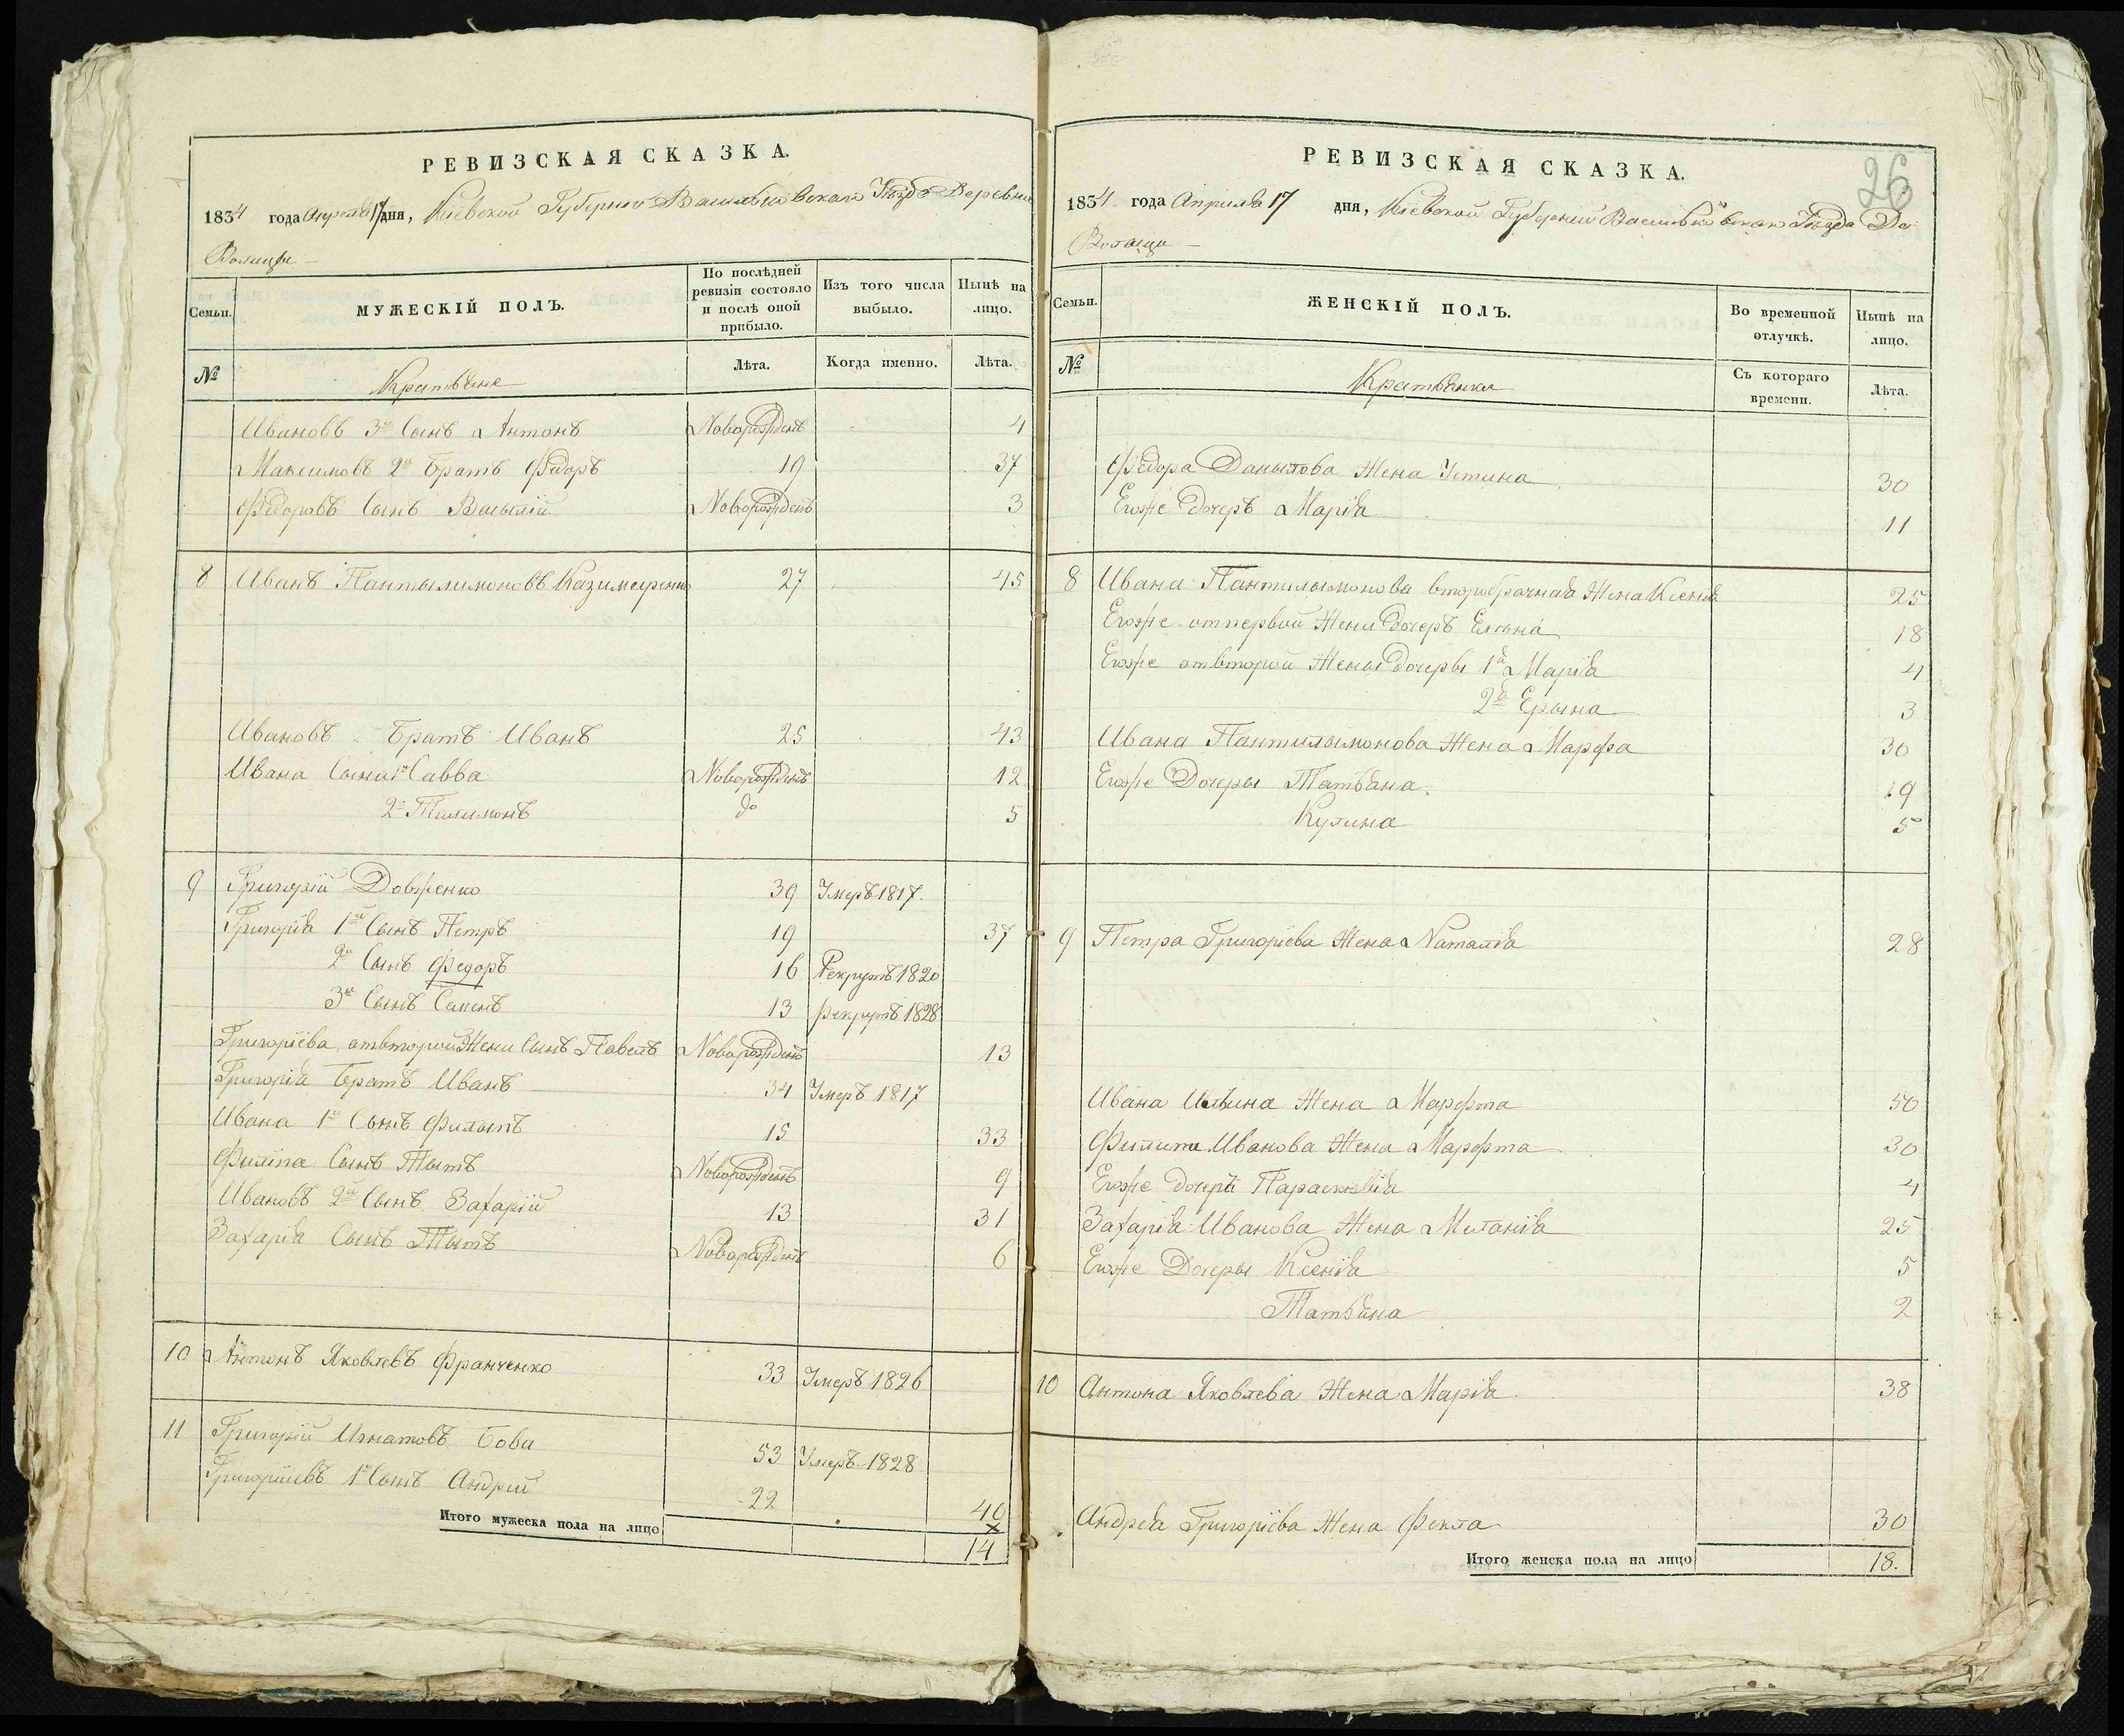 РЕВИЗСКАЯ СКАЗКА.
1834 года Апреля 17 дня, Кіевской Губерніи Васильковскаго Уѣзда Деревни
Волицы
Семьи.
МУЖЕСКІЙ ПОЛЪ.
По послѣдней ревизіи состояло и послѣ оной прибыло.
Изъ того числа выбыло.
Нынѣ на лицо.
№
Крестьяне
Лѣта.
Когда именно.
Лѣта.
Ивановъ 3й Сынъ Антонъ Новорожденъ 4
Максимовъ 2й Братъ Федоръ 19 37
Федоровъ Сынъ Василій Новорожденъ 3
8 Иванъ Пантылимоновъ Казимеренко 27 45
Ивановъ Братъ Иванъ 25 43
Ивана Сыны 1й Савва Новорожденъ 12
2й Талимонъ до 5
9 Григорій Довженко 39 Умеръ 1817.
Григорія 1й Сынъ Петръ 19 37
2й Сынъ Федоръ 16 Рекрутъ 1820
3й Сынъ Семенъ 13 рекрутъ 1828
Григоріева отвторой Жени Сынъ Павелъ Новорожденъ 13
Григорія Братъ Иванъ 34 Умеръ 1817
Ивана 1й Сынъ Филипъ 15 33
Филипа Сынъ Тытъ Новорожденъ 9
Ивановъ 2й Сынъ Захарій 13 31
Захарія Сынъ Тытъ Новорожденъ 6
10 Антонъ Яковлевъ Франченко 33 Умеръ 1826
11 Григорій Игнатовъ Бова 53 Умеръ 1828
Григоріевъ 1й Сынъ Андрей 22 40
Итого мужеска пола на лицо 14
26
РЕВИЗСКАЯ СКАЗКА.
1834 года Апрѣля 17 дня, Кіевской Губерніи Васильковскаго Уѣзда Де
Волицы
Семьи.
ЖЕНСКІЙ ПОЛЪ.
Во временной отлучкѣ.
Нынѣ на лицо.
№
Крестьянки
Съ котораго времени.
Лѣта.
Федора Данылова Жена Устина 30
Егоже дочеръ Марія 11
8 Ивана Пантилимонова второбрачная Жена Ксенія 25
Егоже отпервой Жени Дочеръ Елена 18
Егоже отвторой Жены Дочеры 1я Марія 4
2я Ерына 3
Ивана Пантилимонова Жена Марфа 30
Егоже Дочеры Татьяна 19
Кулина 5
9 Петра Григоріева Жена Наталія 28
Ивана Ильина Жена Марфта 50
Филипа Иванова Жена Марфта 30
Егоже дочерь Параскевія 4
Захарія Иванова Жена Меланія 25
Егоже Дочеры Ксенія 5
Татьяна 2
10 Антона Яковлева Жена Марія 38
Андрея Григоріева Жена Фекла 30
Итого женска пола на лицо 18.